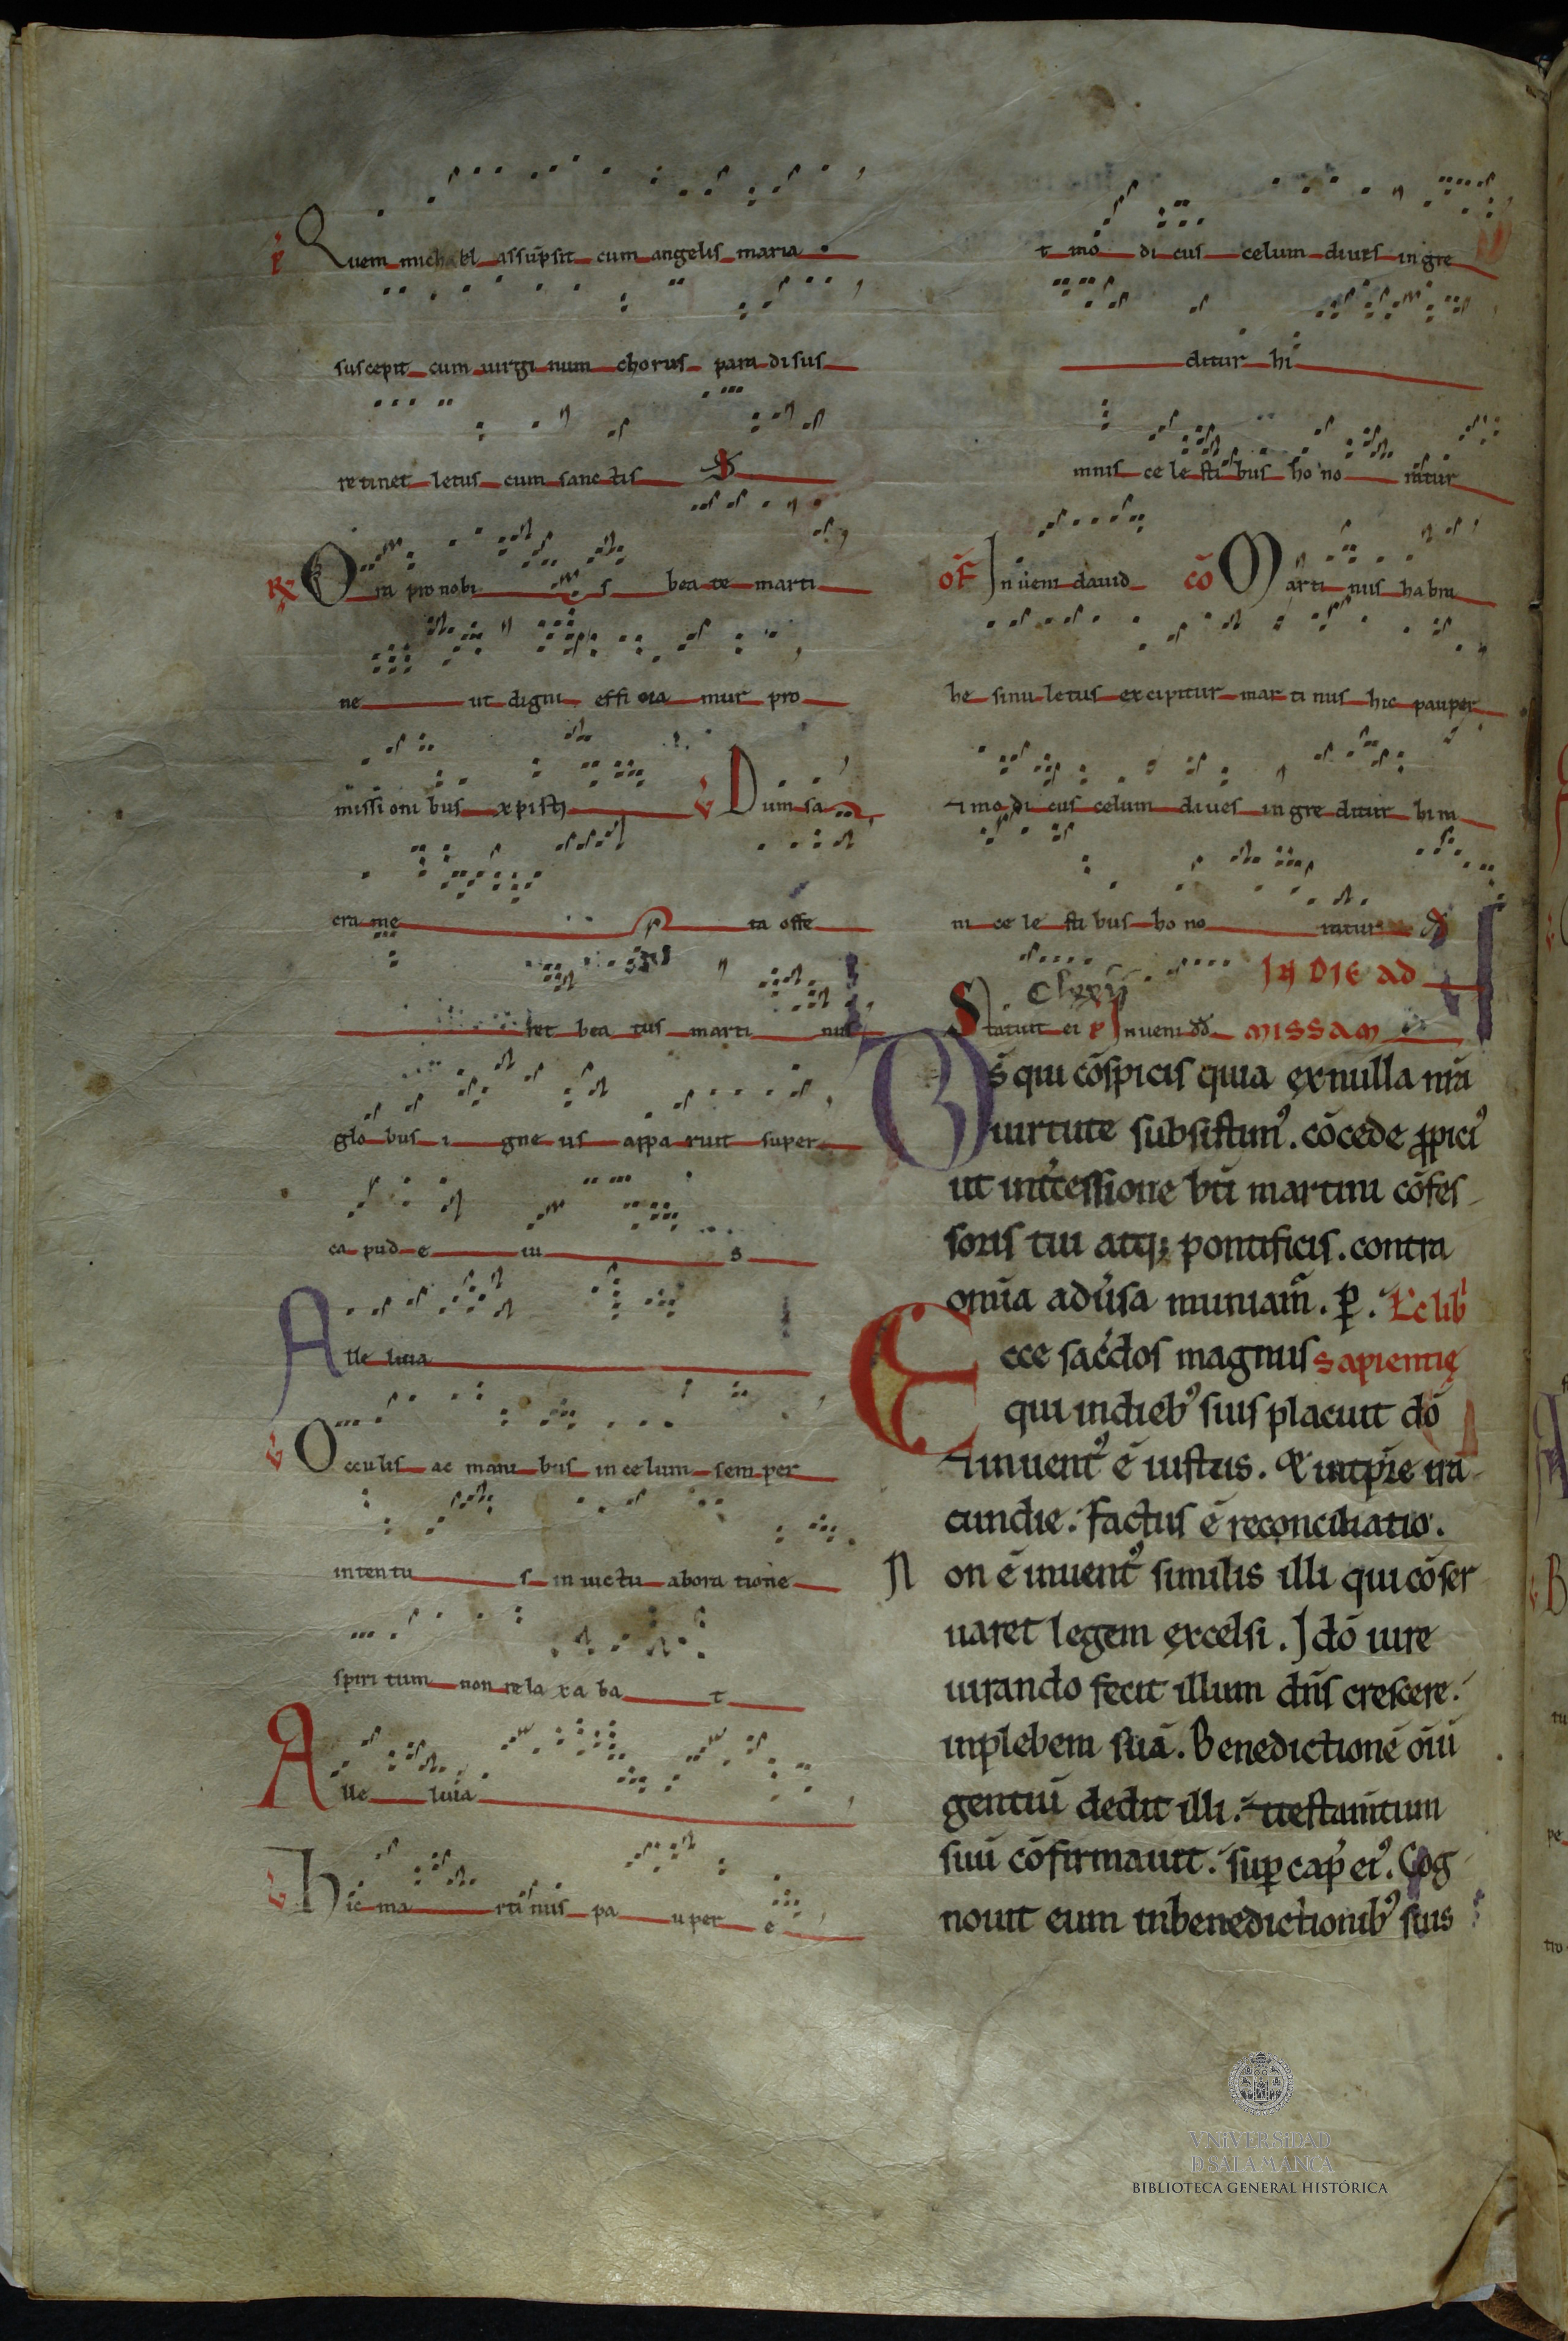 Quem michahel assūpsit cum angelis maria
suscepit cum uirgi num chorus para disus
re tinet letus cum sanctis
℟ Ora pro nobi s bea te marti
ne ut digni effi cia mur pro
missi oni bus xpisti ℣ Dum sa
cra me ta offe
ret bea tus marti nus
glo bus i gne us appa ruit super
ca pud e iu s
Alle luia
℣ Occulis ac mani bus in celum sem per
inten tu s in uictu abora tione
spiri tum non re la xa ba t
Alle luia
℣ Hic ma rti nus pa uper e
t mo di cus celum diues in gre
ditur hi
mnis ce le sti bus ho no ratur
of̄ Inueni dauid cō Marti nus habra
he sinu letus excipitur mar ti nus hic pauper
⁊ mo di cus celum diues in gre ditur him
ni ce le sti bus ho no ratur
IN DIE AD
Clxxij
Statuit ei Inueni dd̄ MISSAM
Ds̄ qui cōspicis quia ex nulla nrā
uirtute subsistimꝰ. cōcede ꝓpiciꝰ
ut int̓cessione bt̄i martini cōfes
soris tui atq; pontificis. contra
omīa adu̓sa muniam̄. ꝑ. Lc̄ lib̓
Ecce sac̓dos magnus sapientię
qui in dieb̓ suis placuit dō
⁊ inuentꝰ ē iustus. Et in tp̄re ira
cundie. factus ē reconciliatio.
Non ē inuentꝰ similis illi qui cōser
uaret legem excelsi. Idō iure
iurando fecit illum dn̄s crescere.
in plebem suā. Benedictionē oīu̅
gentiū dedit illi. ⁊ testam̄tum
suū cōfirmauit. sup cap̓ eiꝰ. Cog
nouit eum in benedictionibꝰ suis
VNiVERSiDAD
D SALAMANCA
BIBLIOTECA GENERAL HISTÓRICA